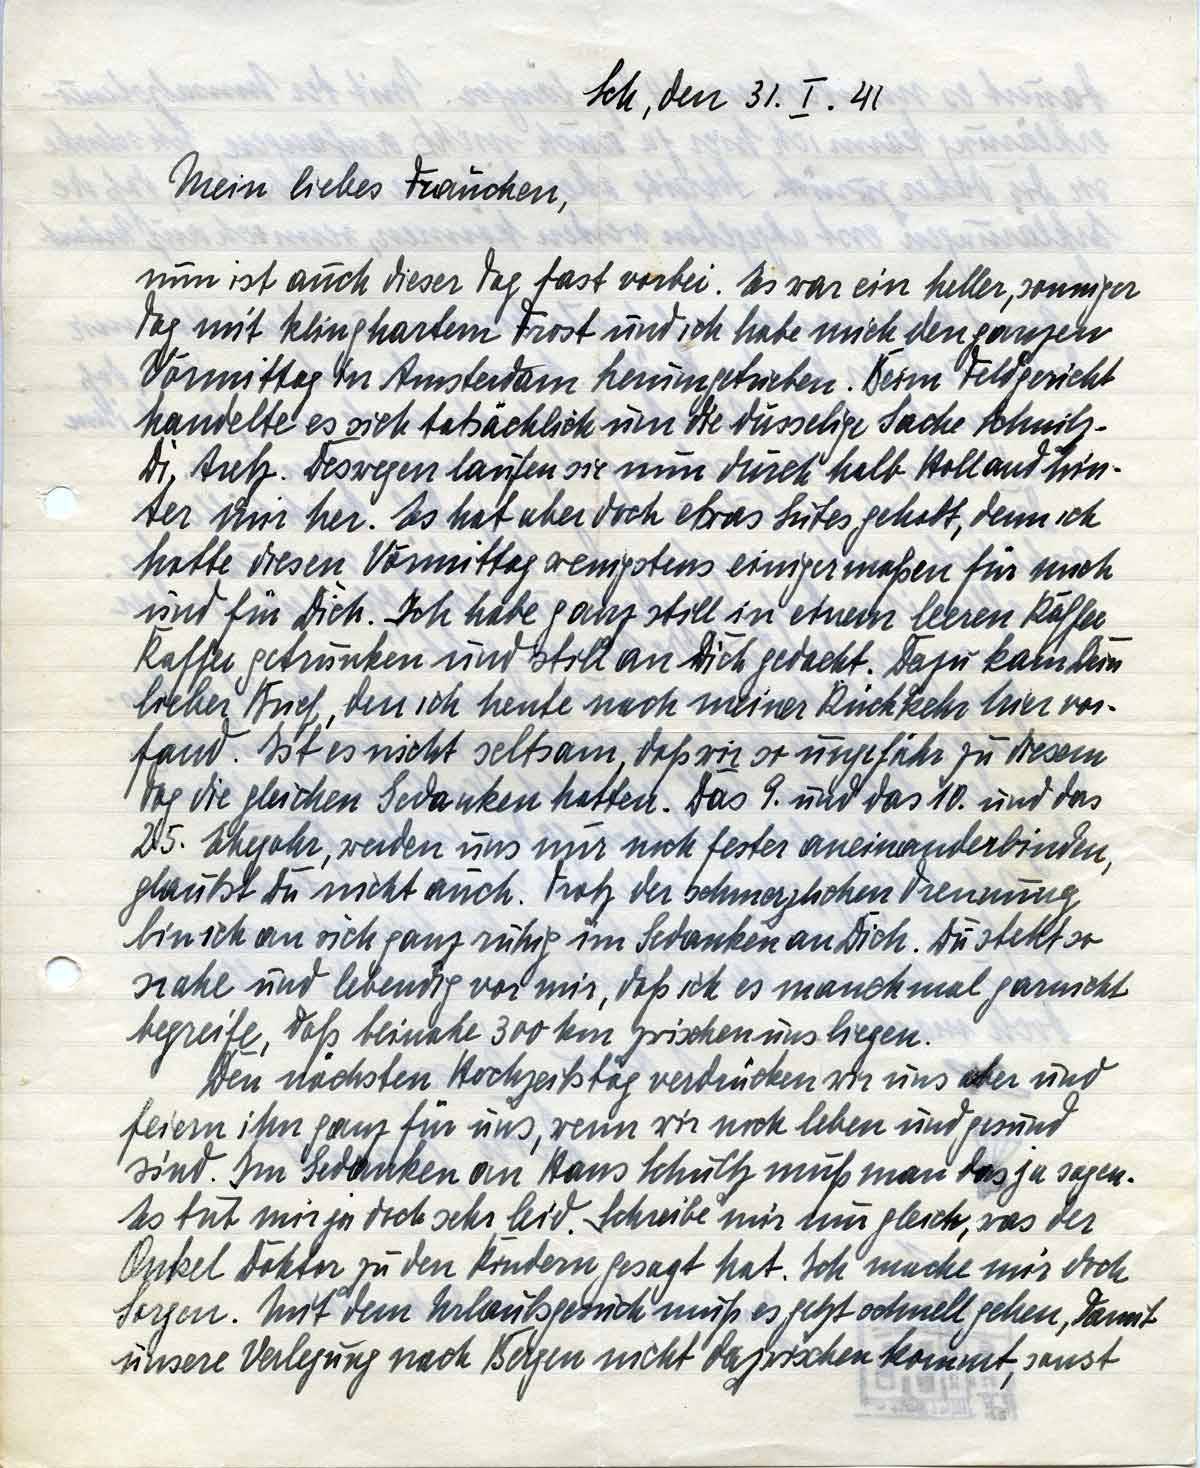 Sch, den 31. I. 41
Mein liebes Frauchen,
nun ist auch dieser Tag fast vorbei. Es war ein heller, sonniger
Tag mit klinghartem Frost und ich habe mich den ganzen
Vormittag in Amsterdam herumgetrieben. Beim Feldgericht
handelte es sich tatsächlich um die dusselige Sache Schmitz-
Deswegen laufen sie nun durch halb Holland hin-
ter mir her. Es hat aber doch etwas Gutes gehabt, denn ich
hatte diesen Vormittag wenigstens einigermaßen für mich
und für Dich. Ich habe ganz still in einem leeren Kaffee
Kaffee getrunken und still an Dich gedacht. Dazu kam Dein
lieber Brief, den ich heute nach meiner Rückkehr hier vor-
fand. Ist es nicht seltsam, daß wir so ungefähr zu diesem
Tag die gleichen Gedanken hatten. Das 9. und das 10. und das
25. Ehejahr, werden uns nur noch fester aneinanderbinden,
glaubst Du nicht auch. Trotz der schmerzlichen Trennung
bin ich an sich ganz ruhig im Gedanken an Dich. Du stehst so
nahe und lebendig vor mir, daß ich es manchmal garnicht
begreife, daß beinahe 300 km zwischen uns liegen.
Den nächsten Hochzeitstag verdrücken wir uns aber und
feiern ihn ganz für uns, wenn wir noch leben und gesund
sind. Im Gedanken an Hans Schultz muß man das ja sagen.
Es tut mir ja doch sehr leid. Schreibe mir nur gleich, was der
Onkel Doktor zu den Kindern gesagt hat. Ich mache mir doch
Sorgen. Mit dem Urlaubsgesuch muß es jetzt schnell gehen, damit
unsere Verlegung nach Bergen nicht dazwischen kommt, sonst